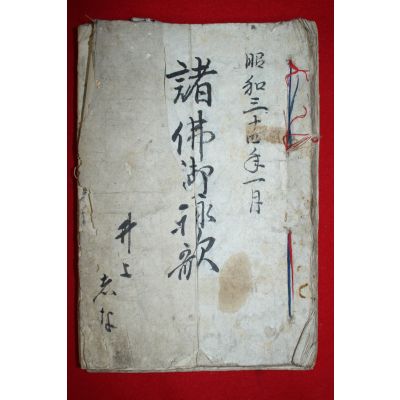 昭和三十四年一月
諸佛御詠歌
井上
志な